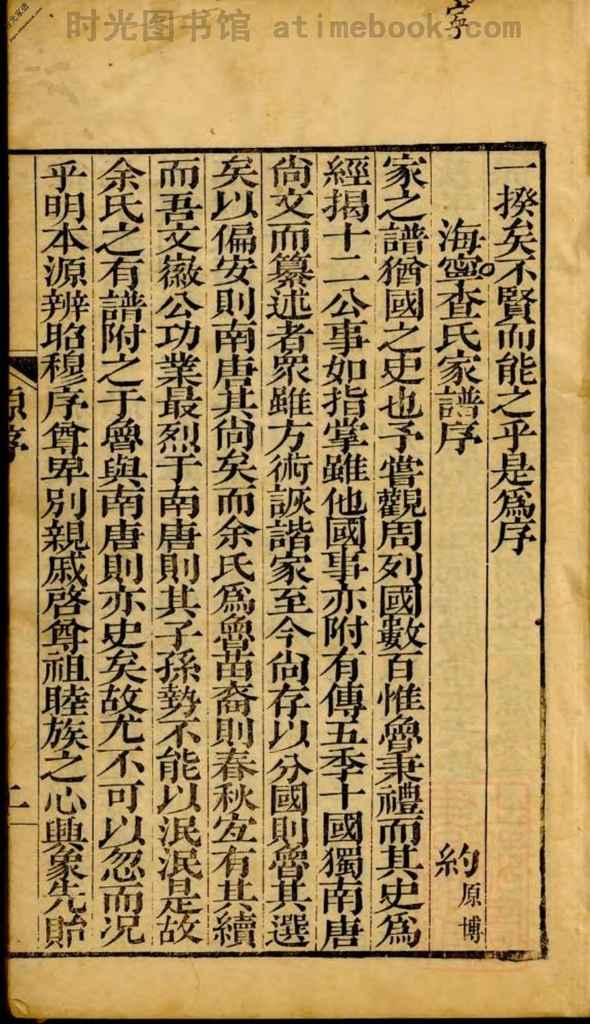 时光图书馆 atimebook.com
寧
一揆矣不賢而能之乎是爲序
海寧查氏家譜序
約
原博
家之譜猶國之史也予嘗觀周列國數百惟魯秉禮而其史爲
經揭十二公事如指掌雖他國事亦附有傳五季十國獨南唐
尙文而纂述者衆雖方術詼諧家至今尙存以分國則魯其選
矣以偏安則南唐其尙矣而余氏爲魯苗裔則春秋宐有其續
而吾文徽公功業最烈于南唐則其子孫勢不能以泯泯是故
余氏之有譜附之于魯與南唐則亦史矣故尤不可以忽而况
乎明本源辨昭穆序尊卑別親戚啓尊祖睦族之心興象先貽
原序
二